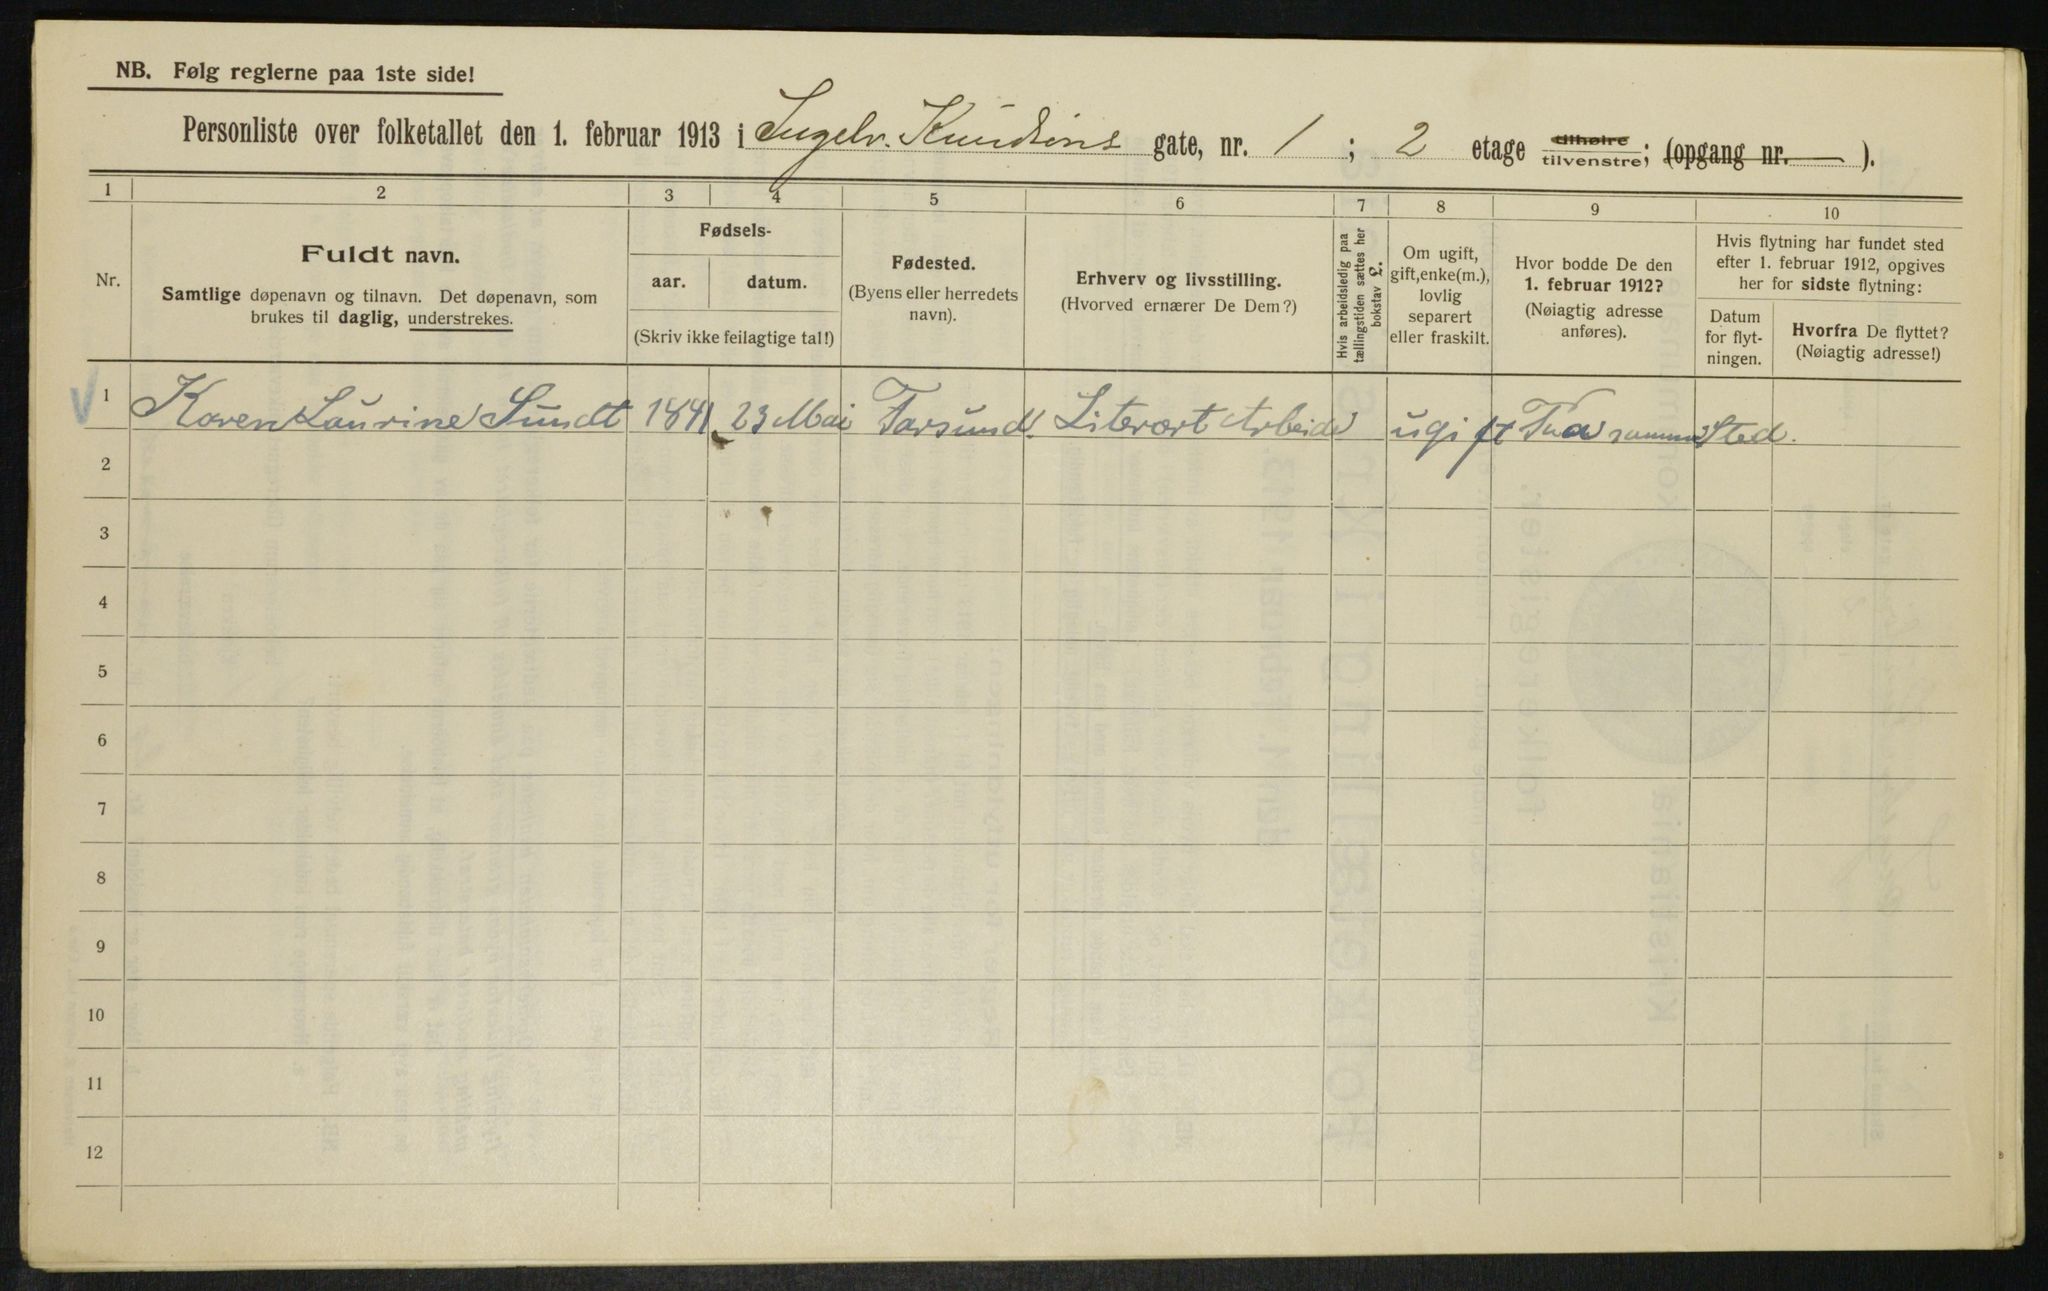 NB. Følg reglerne paa 1ste side!
Personliste over folketallet den 1. februar 1913 i Ingelv. Knudsøns gate, nr. 1; 2 etage tilhøire tilvenstre; (opgang nr. — ).
1 2 3 4 5 6 7 8 9 10
Nr.
Fuldt navn.
Samtlige døpenavn og tilnavn. Det døpenavn, som
brukes til daglig, understrekes.
Fødsels-
aar. datum.
(Skriv ikke feilagtige tal!)
Fødested.
(Byens eller herredets
navn).
Erhverv og livsstilling.
(Hvorved ernærer De Dem?)
Hvis arbeidsledig paa
tællingstiden sættes her
bokstav L.
Om ugift,
gift, enke(m.),
lovlig
separert
eller fraskilt.
Hvor bodde De den
1. februar 1912?
(Nøiagtig adresse
anføres).
Hvis flytning har fundet sted
efter 1. februar 1912, opgives
her for sidste flytning:
Datum
for flyt-
ningen.
Hvorfra De flyttet?
(Nøiagtig adresse!)
1 Karen Laurine Sundt 1841 23 Mai Farsund. Literært Arbeide ugift samme Sted.
2
3
4
5
6
7
8
9
10
11
12